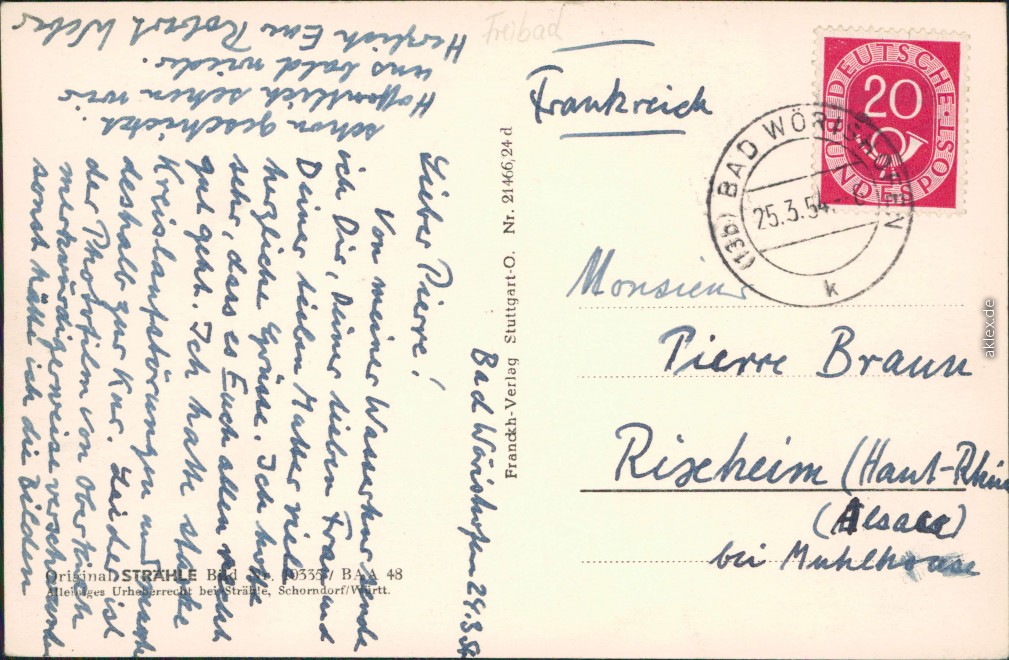 Freibad
Frankreich
DEUTSCHE BUNDESPOST
20
(13b) BAD WÖRISHOFEN
25.3.54
k
Monsieur
Pierre Braun
Rixheim (Haut-Rhin
(Alsace)
bei Mulhouse
Franckh-Verlag Stuttgart-O. Nr. 21466,24 d
Original STRÄHLE Bild Nr. 10335/ BAA 48
Alleiniges Urheberrecht bei Strähle, Schorndorf/Württ.
Bad Wörishofen 24.3.54
Lieber Pierre!
Von meiner Wasserkur sende
ich Dir, Deiner lieben Frau und
Deiner lieben Mutter viele
herzliche Grüsse. Ich hoffe
sehr, dass es Euch allen recht
gut geht. Ich hatte starke
Kreislaufstörungen und mache
deshalb zur Kur. Leider ist
der Photofilm von Oberkirch
merkwürdigerweise verschwunden
sonst hätte ich die Bilder
schon geschickt.
Hoffentlich sehen wir
uns bald wieder.
Herzlich Euer Robert Weber
aklex.de